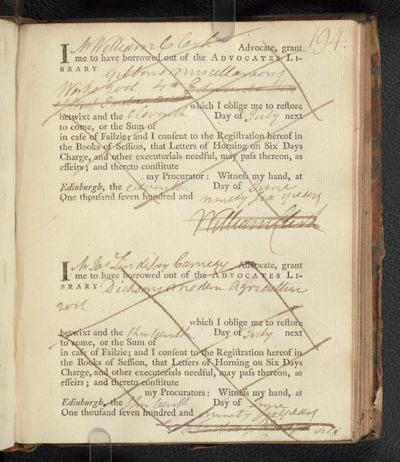 194.
I Mr William Clerk Advocate, grant
me to have borrowed out of the ADVOCATES LI-
BRARY Gibbons miscellaneous
Works 2 vol 4to
which I oblige me to reſtore
betwixt and the eleventh Day of July next
to come, or the Sum of
in caſe of Failzie; and I conſent to the Regiſtration hereof in
the Books of Seſſion, that Letters of Horning on Six Days
Charge, and other executorials needful, may paſs thereon, as
effeirs; and thereto conſtitute
my Procurator: Witneſs my hand, at
Edinburgh, the eleventh Day of June
One thouſand ſeven hundred and
ninety six years
William Clerk
I Mr Jas Lindsay Carnegy Advocate, grant
me to have borrowed out of the ADVOCATES LI-
BRARY Dicksons modern Agriculture
2 vol
which I oblige me to reſtore
betwixt and the thirteenth Day of July next
to come, or the Sum of
in caſe of Failzie; and I conſent to the Regiſtration hereof in
the Books of Seſſion, that Letters of Horning on Six Days
Charge, and other executorials needful, may paſs thereon, as
effeirs; and thereto conſtitute
my Procurators: Witneſs my hand, at
Edinburgh, the thirteenth Day of June
One thouſand ſeven hundred and ninety six years